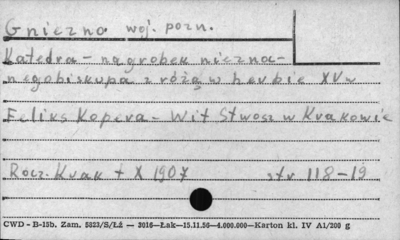 Gniezno woj. pozn.
Katedra - nagrobek niezna-
nego biskupa z różą w herbie XV w
Feliks Kopera - Wit Stwosz w Krakowie
Rocz. Krak t X 1907 str 118-19
CWD - B-15b. Zam. 5823/S/Łź — 3016—Łak—15.11.56—4.000.000—Karton kl. IV A1/200 g